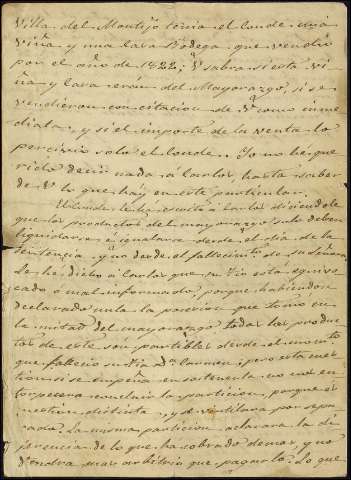 Villa del Montijo tenia el Conde una
viña y una Casa Bodega que vendió
por el año de 1822; V. sabra si esta vi-
ña y Casa eran del Mayorazgo, si se
vendieron con citacion de V. como inme-
diata, y si el importe de la venta lo
percivió solo el Conde. Yo no he que-
rido decir nada á Carlos, hasta saber
de V. lo que hay en este particular.
El Conde le ha escrito á Carlos diciendole
que los productos del mayorazgo solo deben
liquidarse e igualarse desde el dia de la
sentencia, y no desde el fallecimto de su Señora.
Le he dicho á Carlos que su Tio está equivo-
cado ó mal informado, porque habiendose
declarado nula la posesion que tomó en
la mitad del mayorazgo todos los produc-
tos de este son partibles desde el momto
que falleció su tia Da Carmen; pero esta cues-
tion si se empeña en sostenerla no nos en-
torpecera concluir la particion, porque es
cuestion distinta, y se ventilara por sepa-
rado. La misma particion aclarara la di-
ferencia de lo que ha sobrado demas, y no
tendra mas arbitrio que pagarlo. Lo que